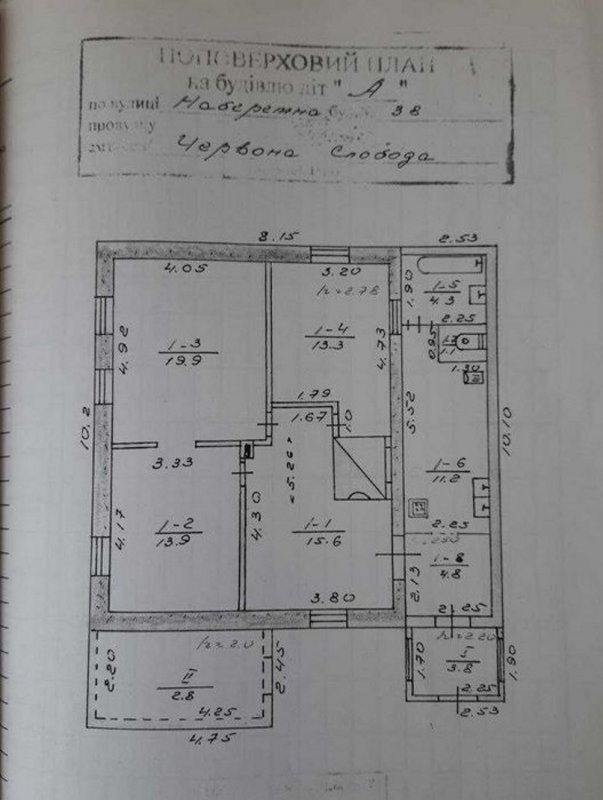 ПОПОВЕРХОВИЙ ПЛАН
на будівлю літ "А"
по вулиці Набережна буд. 38
провулку
Червона Слобода
8.15
2.53
4.05
3.20
h=2.78
1.90
1-5
4.3
2.25
4.92
1-3
19.9
1-4
13.3
4.73
0.85
1.20
1.79
1.67
1.0
5.52
10.2
10.10
3.33
5.26
1-6
11.2
4.17
1-2
13.9
4.30
1-1
15.6
2.25
1-8
4.8
2.13
3.80
2.25
h=2.0
h=2.20
2.20
II
2.8
2.45
1.70
I
3.8
1.90
4.25
2.25
4.75
2.53